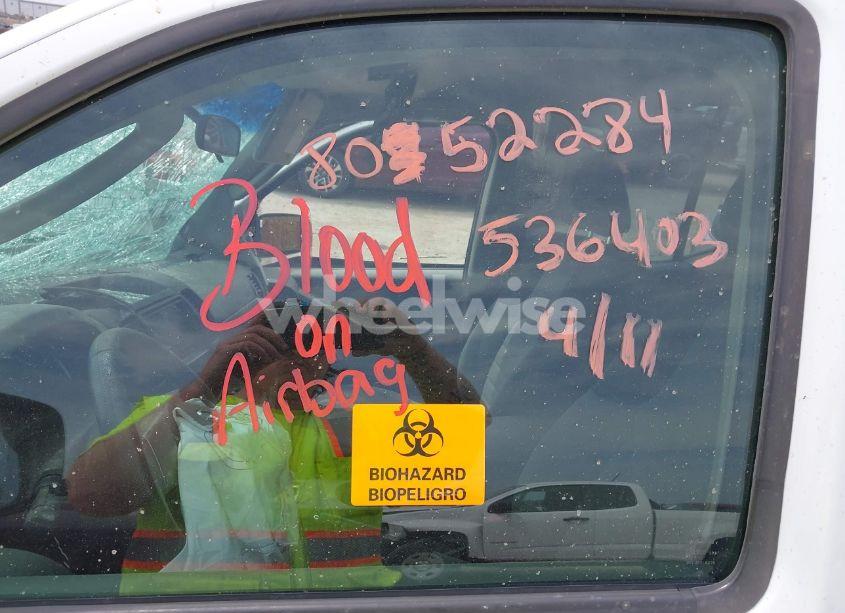 80 52284
Blood
536403
on
4/11
Airbag
wheelwise
BIOHAZARD
BIOPELIGRO